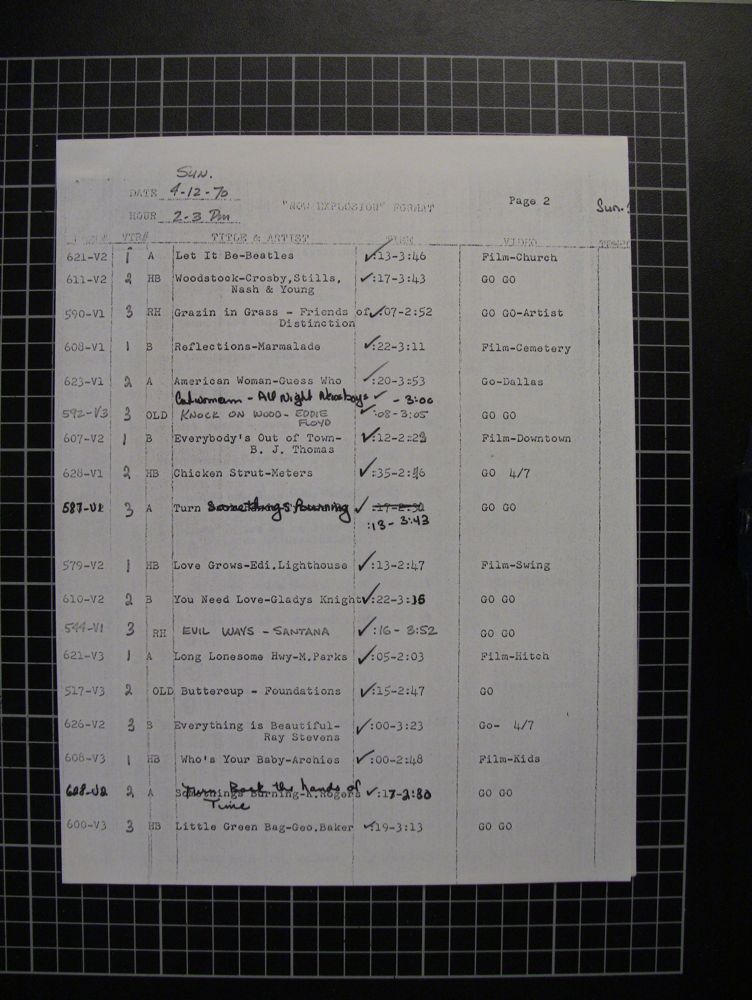 SUN.
DATE 4-12-70
"NOW EXPLOSION" FORMAT Page 2
Sun.
HOUR 2-3 Pm
VTR# TITLE & ARTIST TIME VIDEO
621-V2 1 A Let It Be-Beatles ✓:13-3:46 Film-Church
611-V2 2 HB Woodstock-Crosby,Stills, ✓:17-3:43 GO GO
Nash & Young
590-V1 3 RH Grazin in Grass - Friends of ✓:07-2:52 GO GO-Artist
Distinction
608-V1 1 B Reflections-Marmalade ✓:22-3:11 Film-Cemetery
623-V1 2 A American Woman-Guess Who ✓:20-3:53 Go-Dallas
Catwoman - All Night Newsboys ✓ - 3:00
592-V3 3 OLD KNOCK ON WOOD- EDDIE ✓:08-3:05 GO GO
FLOYD
607-V2 1 B Everybody's Out of Town- ✓:12-2:29 Film-Downtown
B. J. Thomas
628-V1 2 HB Chicken Strut-Meters ✓:35-2:46 GO 4/7
587-V2 3 A Turn Somethings Burning ✓ :17-2:30 GO GO
:13-3:43
579-V2 1 HB Love Grows-Edi.Lighthouse ✓:13-2:47 Film-Swing
610-V2 2 B You Need Love-Gladys Knight ✓:22-3:16 GO GO
544-V1 3 RH EVIL WAYS - SANTANA ✓:16-3:52 GO GO
621-V3 1 A Long Lonesome Hwy-M.Parks ✓:05-2:03 Film-Hitch
517-V3 2 OLD Buttercup - Foundations ✓:15-2:47 GO
626-V2 3 B Everything is Beautiful- ✓:00-3:23 Go- 4/7
Ray Stevens
606-V3 1 HB Who's Your Baby-Archies ✓:00-2:48 Film-Kids
Turn Back the hands of
628-V2 2 A Somethings Burning-K.Rogers ✓:17-2:80 GO GO
Time
600-V3 3 HB Little Green Bag-Geo.Baker ✓:19-3:13 GO GO